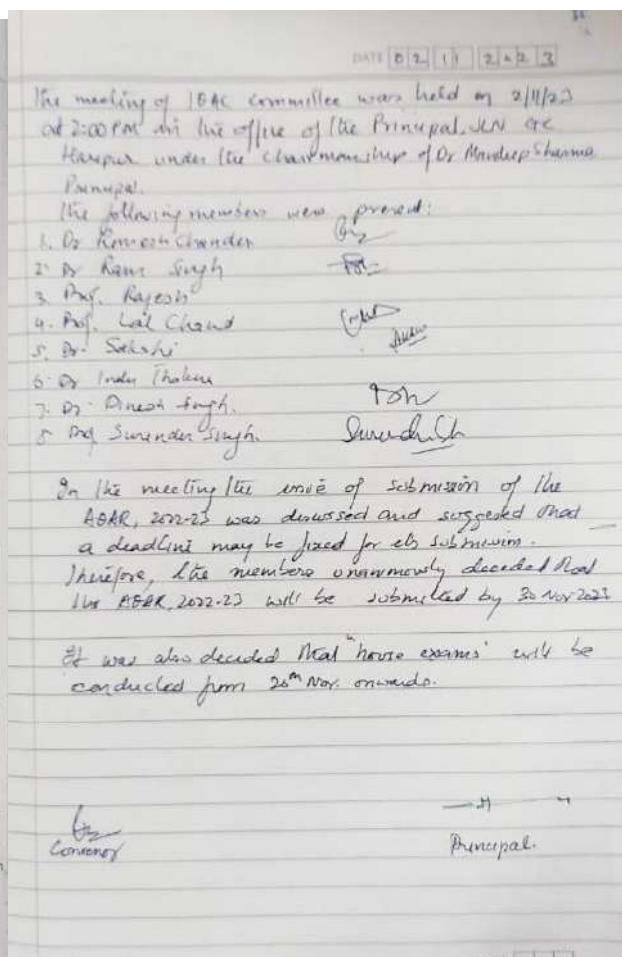 DATE 02 11 2023
The meeting of IQAC committee was held on 2/11/23
at 2:00 PM in the office of the Principal, JLN GC
Haripur under the Chairmanship of Dr Mandeep Sharma
Principal.
The following members were present:
1. Dr Romesh Chander
2. Dr Ram Singh
3. Prof. Rajesh
4. Prof. Lal Chand
5. Dr. Sakshi
6. Dr Indu Thakur
7. Dr. Dinesh Singh.
8 Prof Surender Singh.
In the meeting the issue of submission of the
AQAR, 2022-23 was discussed and suggested that
a deadline may be fixed for its submission.
Therefore, the members unanimously decided that
the AQAR, 2022-23 will be submitted by 30 Nov 2023
It was also decided that "house exams" will be
conducted from 20th Nov. onwards.
Convenor
Principal.